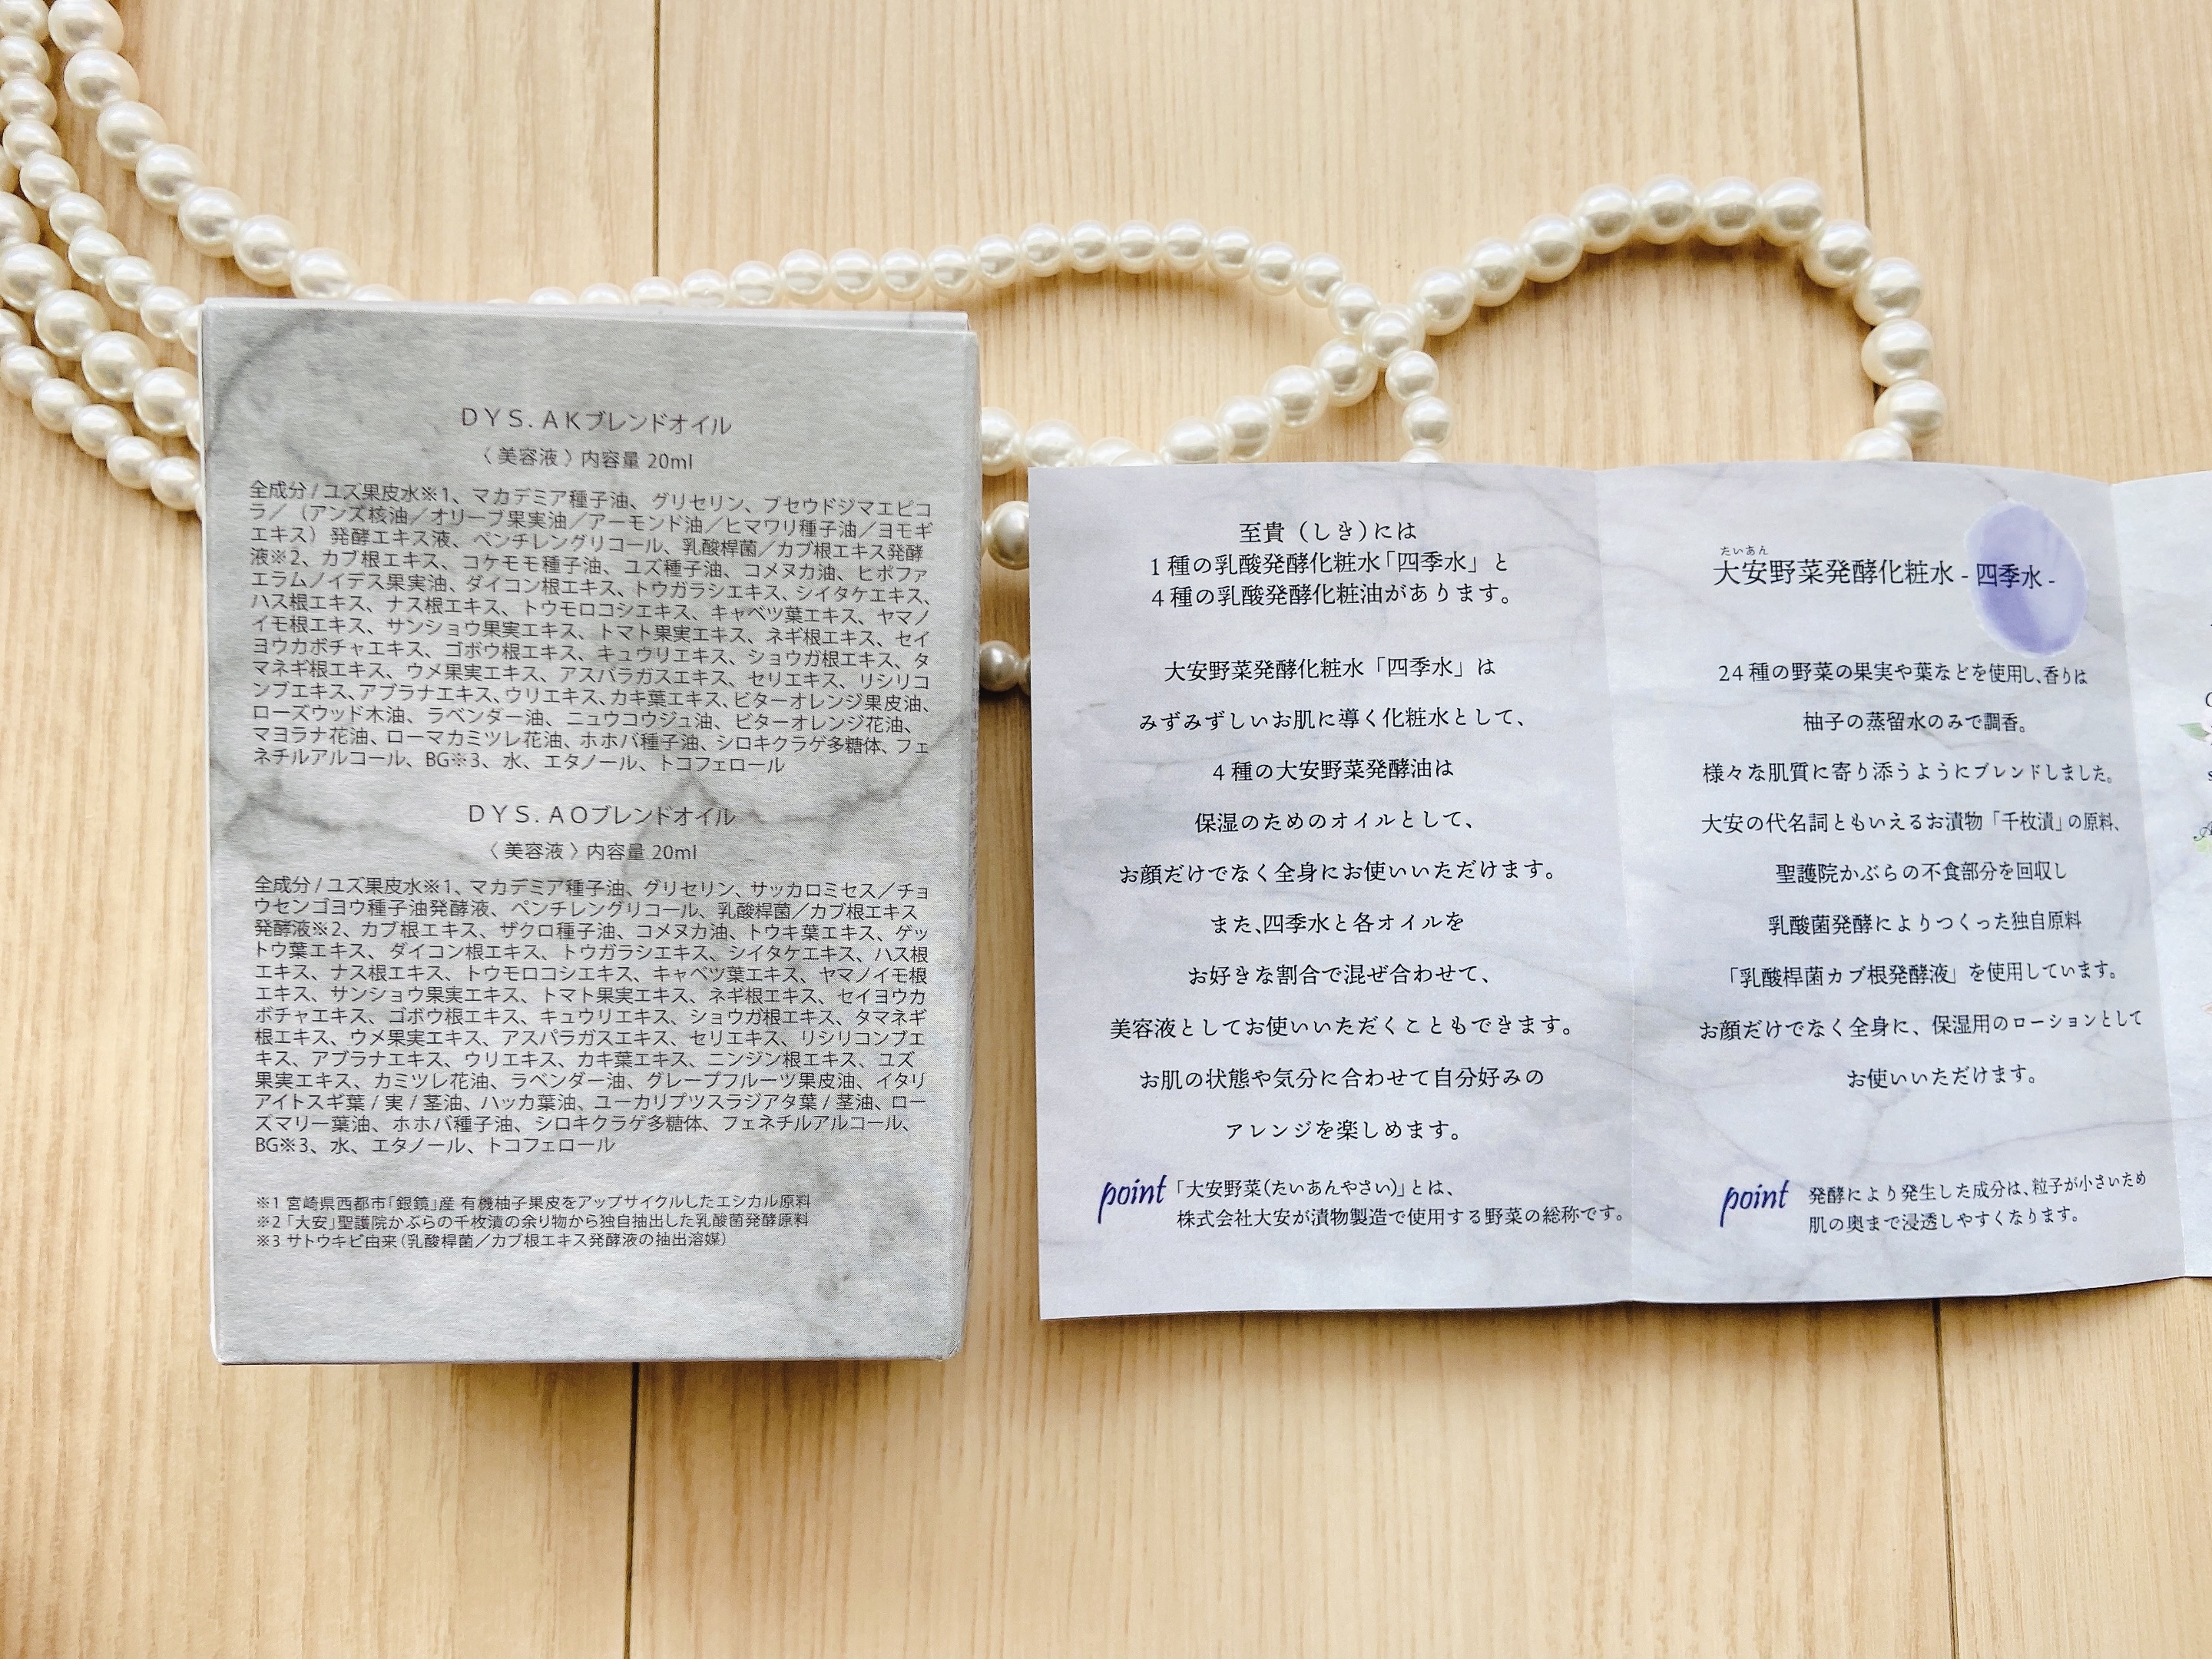 DYS.AKブレンドオイル
〈美容液〉内容量 20ml
全成分/ユズ果皮水※1、マカデミア種子油、グリセリン、プセウドジマエピコ
ラ/(アンズ核油/オリーブ果実油/アーモンド油/ヒマワリ種子油/ヨモギ
エキス)発酵エキス液、ペンチレングリコール、乳酸桿菌/カブ根エキス発酵
液※2、カブ根エキス、コケモモ種子油、ユズ種子油、コメヌカ油、ヒポファ
エラムノイデス果実油、ダイコン根エキス、トウガラシエキス、シイタケエキス、
ハス根エキス、ナス根エキス、トウモロコシエキス、キャベツ葉エキス、ヤマノ
イモ根エキス、サンショウ果実エキス、トマト果実エキス、ネギ根エキス、セイ
ヨウカボチャエキス、ゴボウ根エキス、キュウリエキス、ショウガ根エキス、タ
マネギ根エキス、ウメ果実エキス、アスパラガスエキス、セリエキス、リシリコ
ンブエキス、アブラナエキス、ウリエキス、カキ葉エキス、ビターオレンジ果皮油、
ローズウッド木油、ラベンダー油、ニュウコウジュ油、ビターオレンジ花油、
マヨラナ花油、ローマカミツレ花油、ホホバ種子油、シロキクラゲ多糖体、フェ
ネチルアルコール、BG※3、水、エタノール、トコフェロール
DYS.AOブレンドオイル
〈美容液〉内容量 20ml
全成分/ユズ果皮水※1、マカデミア種子油、グリセリン、サッカロミセス/チョ
ウセンゴヨウ種子油発酵液、ペンチレングリコール、乳酸桿菌/カブ根エキス
発酵液※2、カブ根エキス、ザクロ種子油、コメヌカ油、トウキ葉エキス、ゲッ
トウ葉エキス、ダイコン根エキス、トウガラシエキス、シイタケエキス、ハス根
エキス、ナス根エキス、トウモロコシエキス、キャベツ葉エキス、ヤマノイモ根
エキス、サンショウ果実エキス、トマト果実エキス、ネギ根エキス、セイヨウカ
ボチャエキス、ゴボウ根エキス、キュウリエキス、ショウガ根エキス、タマネギ
根エキス、ウメ果実エキス、アスパラガスエキス、セリエキス、リシリコンブエ
キス、アブラナエキス、ウリエキス、カキ葉エキス、ニンジン根エキス、ユズ
果実エキス、カミツレ花油、ラベンダー油、グレープフルーツ果皮油、イタリ
アイトスギ葉/実/茎油、ハッカ葉油、ユーカリプツスラジアタ葉/茎油、ロー
ズマリー葉油、ホホバ種子油、シロキクラゲ多糖体、フェネチルアルコール、
BG※3、水、エタノール、トコフェロール
※1 宮崎県西都市「銀鏡」産 有機柚子果皮をアップサイクルしたエシカル原料
※2「大安」聖護院かぶらの千枚漬の余り物から独自抽出した乳酸菌発酵原料
※3 サトウキビ由来(乳酸桿菌/カブ根エキス発酵液の抽出溶媒)
至貴(しき)には
1種の乳酸発酵化粧水「四季水」と
4種の乳酸発酵化粧油があります。
大安野菜発酵化粧水「四季水」は
みずみずしいお肌に導く化粧水として、
4種の大安野菜発酵油は
保湿のためのオイルとして、
お顔だけでなく全身にお使いいただけます。
また、四季水と各オイルを
お好きな割合で混ぜ合わせて、
美容液としてお使いいただくこともできます。
お肌の状態や気分に合わせて自分好みの
アレンジを楽しめます。
point 「大安野菜(たいあんやさい)」とは、
株式会社大安が漬物製造で使用する野菜の総称です。
たいあん
大安野菜発酵化粧水 - 四季水 -
24種の野菜の果実や葉などを使用し、香りは
柚子の蒸留水のみで調香。
様々な肌質に寄り添うようにブレンドしました。
大安の代名詞ともいえるお漬物「千枚漬」の原料、
聖護院かぶらの不食部分を回収し
乳酸菌発酵によりつくった独自原料
「乳酸桿菌カブ根発酵液」を使用しています。
お顔だけでなく全身に、保湿用のローションとして
お使いいただけます。
point 発酵により発生した成分は、粒子が小さいため
肌の奥まで浸透しやすくなります。